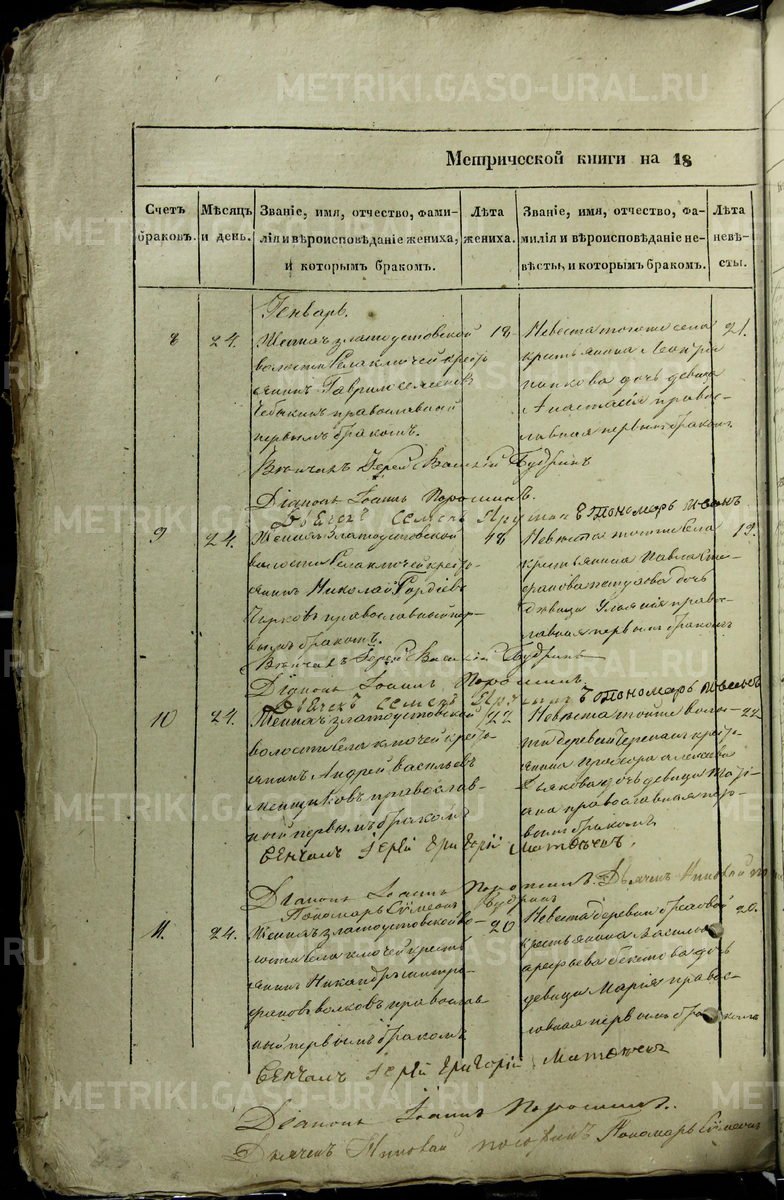 METRIKI.GASO-URAL.RU
Метрической книги на 18
Счетъ браковъ.
Мѣсяцъ и день.
Званіе, имя, отчество, фамилія и вѣроисповѣданіе жениха, и которымъ бракомъ.
Лѣта жениха.
Званіе, имя, отчество, фамилія и вѣроисповѣданіе невѣсты, и которымъ бракомъ.
Лѣта невѣсты.
Генварь.
8
24.
Женихъ златоустовской
волости села ключей кресть
янинъ Гаврило семеновъ
Чебыкинъ православный
первымъ бракомъ.
18
Невеста тогоже села
крестьянина
попкова дочь девица
Анастасія право-
славная первымъ бракомъ
21.
Венчалъ Іерей Василій Будринъ
Діаконъ Іоаннъ Порошинъ.
Дьячекъ Семенъ
Пономарь
9
24.
Женихъ Златоустовской
волости села ключей кресть-
янинъ Николай Гордіевъ
православный пер-
вымъ бракомъ.
18
Невеста тогоже села
крестьянина Павла Сте-
фанова дочь
девица Ульянія право-
славная первымъ бракомъ
19.
Венчалъ Іерей Василій Будринъ
Діаконъ Іоаннъ Порошинъ.
Дьячекъ Семенъ
Пономарь
10
24.
Женихъ златоустовской
волости села ключей кресть-
янинъ Андрей Васильевъ
православ-
ный первымъ бракомъ
22
Невеста тойже волос-
ти деревни кресть-
янина Прохора
Дьякова дочь девица Тати-
ана православная пер-
вымъ бракомъ
22
Венчалъ Іерей Григорій
Діаконъ Іоаннъ Порошинъ. Дьячекъ
Пономарь Сѵмеонъ Будринъ
11.
24.
Женихъ златоустовской во-
лости села ключей кресть
янинъ Никандръ митро-
фановъ волковъ православ-
ный первымъ бракомъ
20
Невеста деревни
крестьянина Василья
арефьева дочь
девица Марія правос-
лавная первымъ бракомъ
20.
Венчалъ Іерей Григорій
Діаконъ Іоаннъ Порошинъ.
Дьячекъ
Пономарь Сѵмеонъ